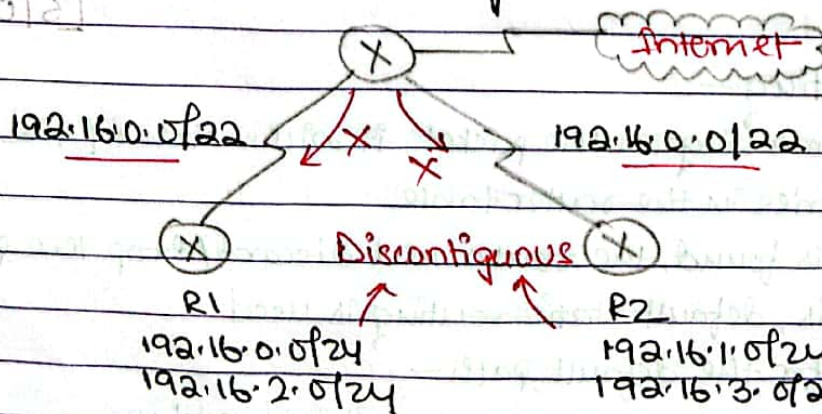 X
Internet
192.16.0.0/22
X
X
192.16.0.0/22
X
Discontiguous
X
R1
R2
192.16.0.0/24
192.16.1.0/24
192.16.2.0/24
192.16.3.0/2